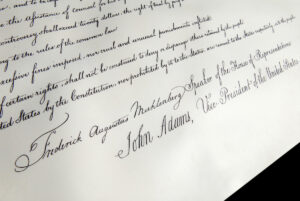 and to be
the assistance of counsel for his
controversy shall exceed twenty dollars, the right of trial by jury
to the rules of the common law.
excessive fines imposed, nor cruel and unusual punishments inflicted.
of certain rights, shall not be construed to deny or disparage others retained by the people.
United States by the Constitution, nor prohibited by it to the States, are reserved to the States respectively, or to the people.
Frederick Augustus Muhlenberg Speaker of the House of Representatives
John Adams, Vice-President of the United States